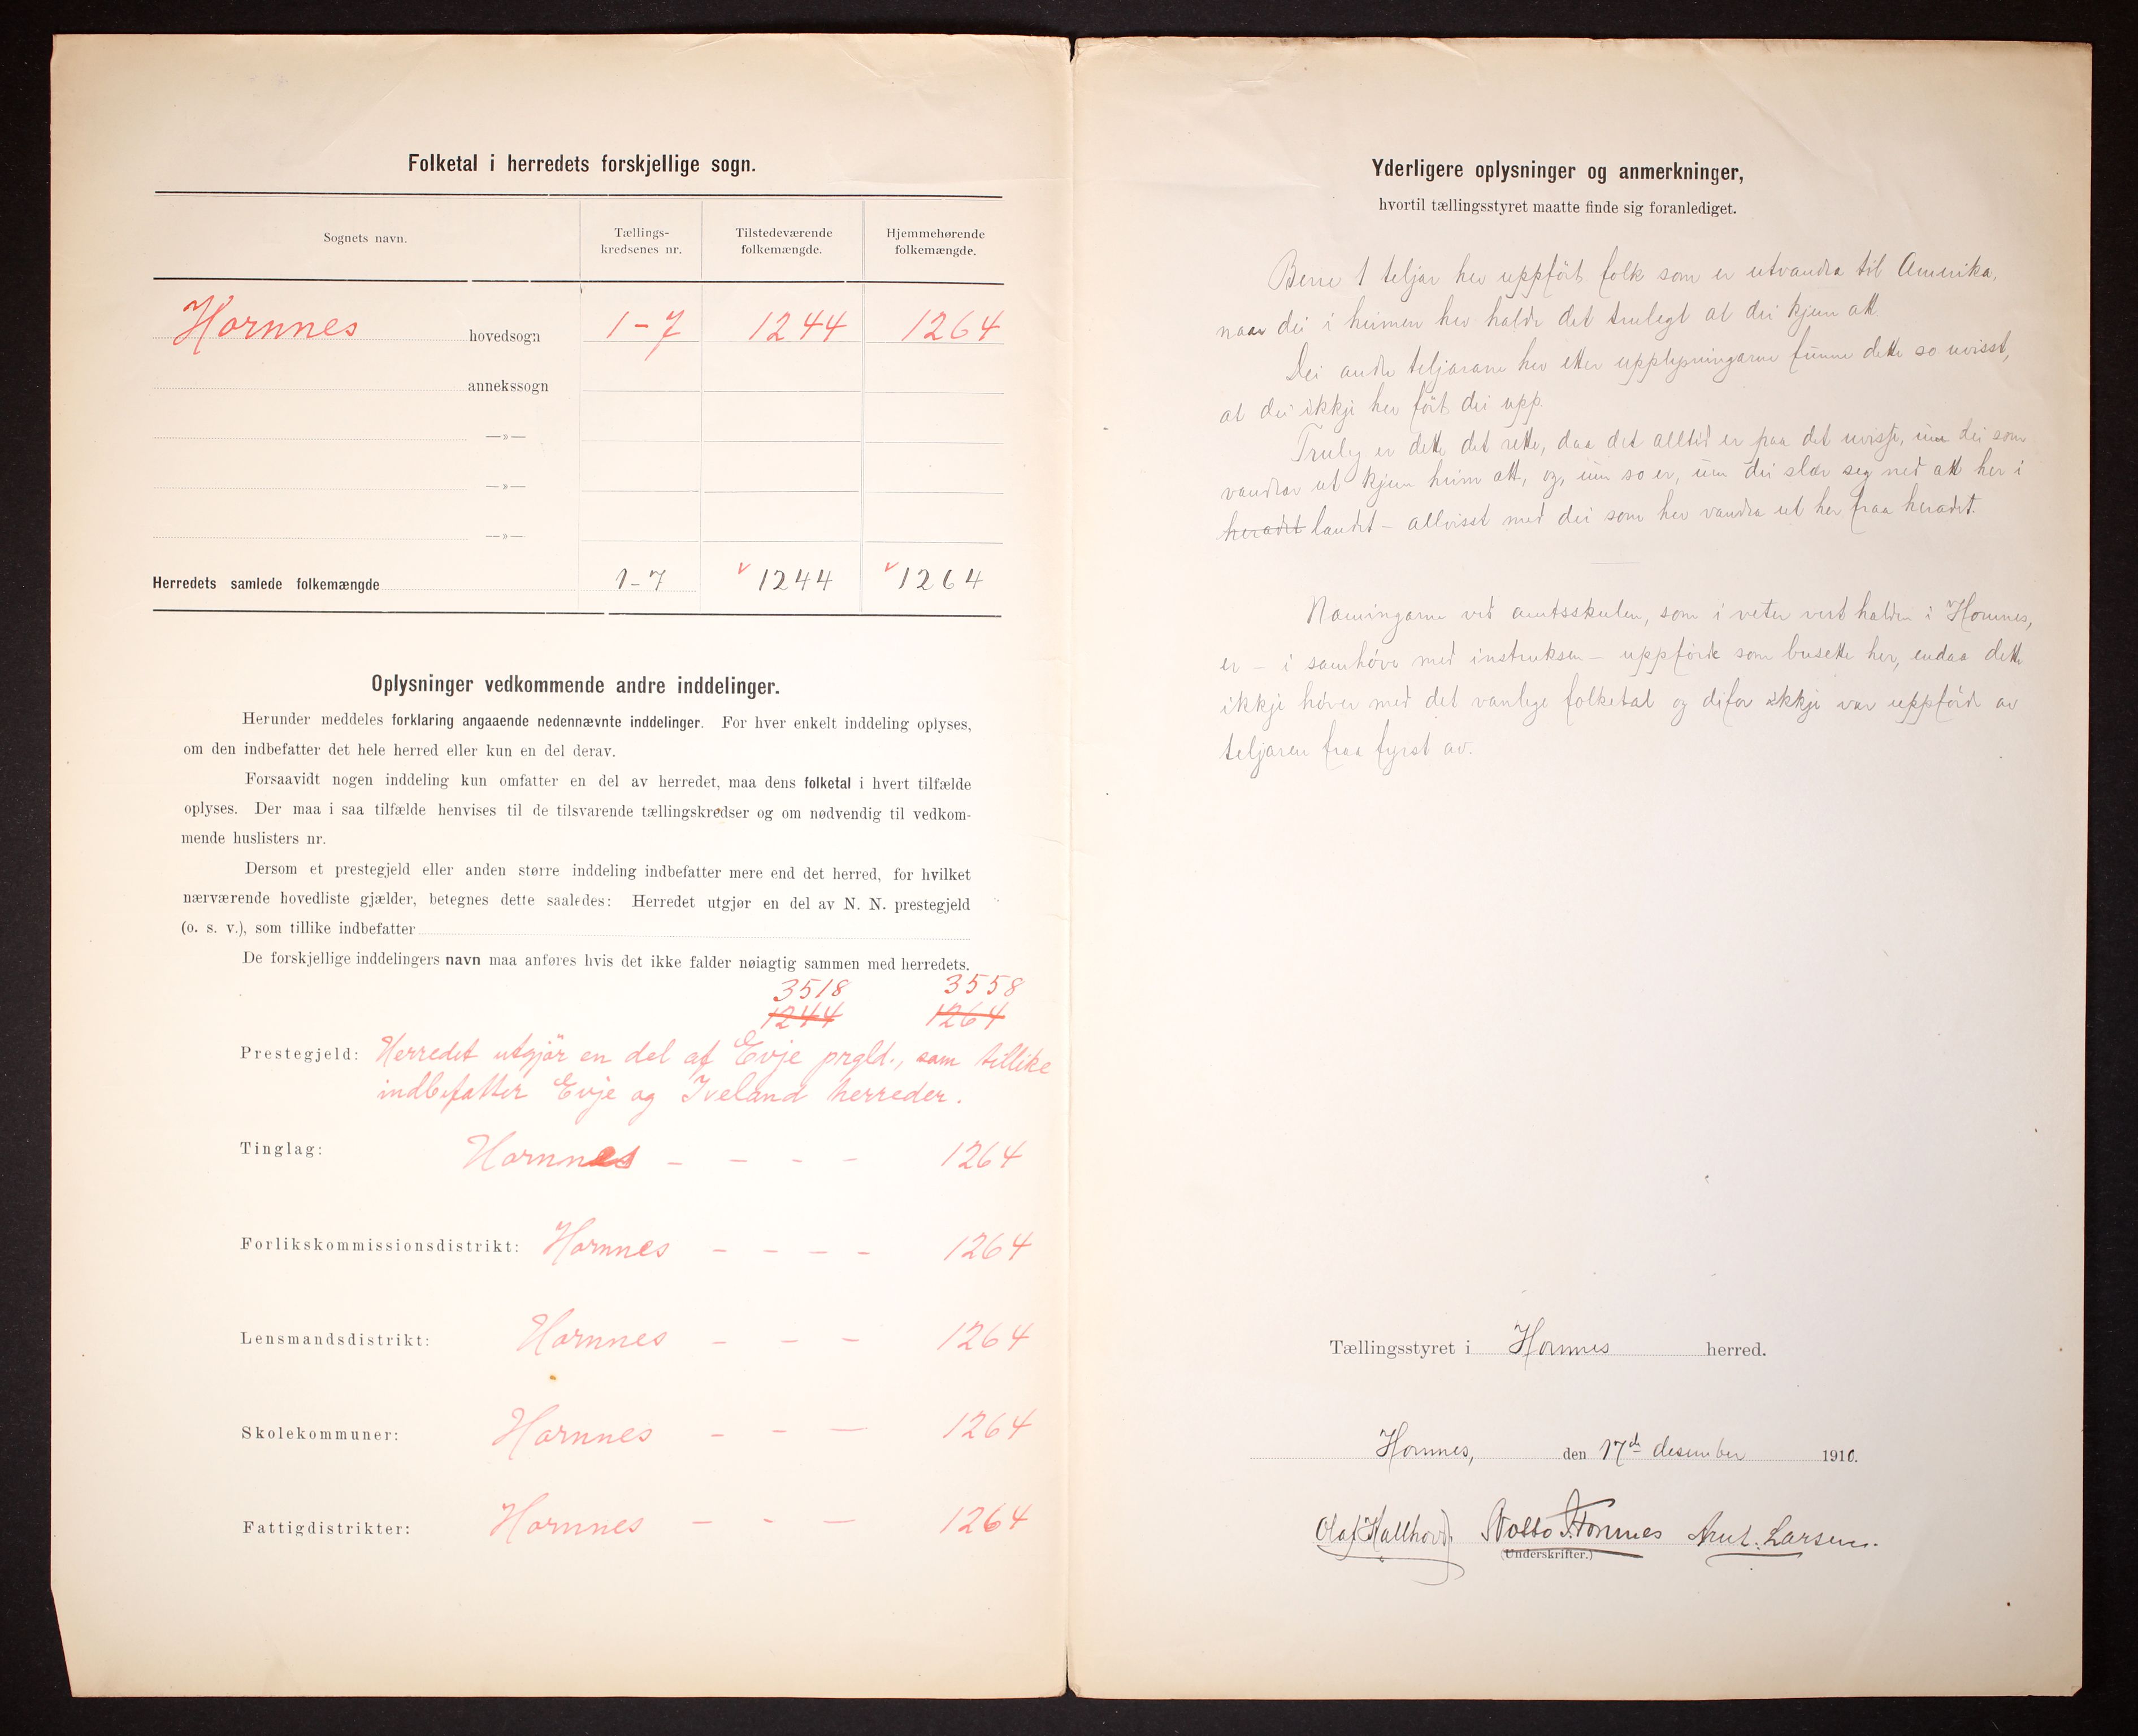 Folketal i herredets forskjellige sogn.
Sognets navn.
Tællings-
kredsenes nr.
Tilstedeværende
folkemængde.
Hjemmehørende
folkemængde.
Hornnes hovedsogn 1-7 1244 1264
annekssogn
—»—
—»—
—»—
Herredets samlede folkemængde 1-7 v 1244 v 1264
Oplysninger vedkommende andre inddelinger.
Herunder meddeles forklaring angaaende nedennævnte inddelinger. For hver enkelt inddeling oplyses,
om den indbefatter det hele herred eller kun en del derav.
Forsaavidt nogen inddeling kun omfatter en del av herredet, maa dens folketal i hvert tilfælde
oplyses. Der maa i saa tilfælde henvises til de tilsvarende tællingskredser og om nødvendig til vedkom-
mende huslisters nr.
Dersom et prestegjeld eller anden større inddeling indbefatter mere end det herred, for hvilket
nærværende hovedliste gjælder, betegnes dette saaledes: Herredet utgjør en del av N. N. prestegjeld
(o. s. v.), som tillike indbefatter
De forskjellige inddelingers navn maa anføres hvis det ikke falder nøiagtig sammen med herredets.
3518 3558
1244 1264
Prestegjeld: Herredet utgjör en del af Evje prgld., som tillike
indbefatter Evje og Iveland herreder.
Tinglag: Hornnes - - - - 1264
Forlikskommissionsdistrikt: Hornnes - - - - 1264
Lensmandsdistrikt: Hornnes - - - 1264
Skolekommuner: Hornnes - - — 1264
Fattigdistrikter: Hornnes - - — 1264
Yderligere oplysninger og anmerkninger,
hvortil tællingsstyret maatte finde sig foranlediget.
Berre 1 teljar hev uppført folk som er utvandra til Amerika,
naar dei i heimen hev halde det trulegt at dei kjem att.
Dei andre teljarane hev etter upplysningarne funne dette so uvisst,
at dei ikkje hev ført dei upp.
Truleg er dette det rette, daa det alltid er paa det uvisse, um dei som
vandrar ut kjem heim att, og, um so er, um dei slær seg ned att her i
heradet landet - allvisst med dei som hev vandra ut her fraa heradet.
Næmingarne ved amtsskulen, som i veter vert halden i Hornnes,
er - i samhøve med instruksen - uppførde som busette her, endaa dette
ikkje høver med det vanlege folketal og difor ikkje var uppførde av
teljaren fraa fyrst av.
Tællingsstyret i Hornnes herred.
Hornnes, den 17de desember 1910.
Olaf Hallhovd. Notto T. Hornnes Larsen.
(Underskrifter.)